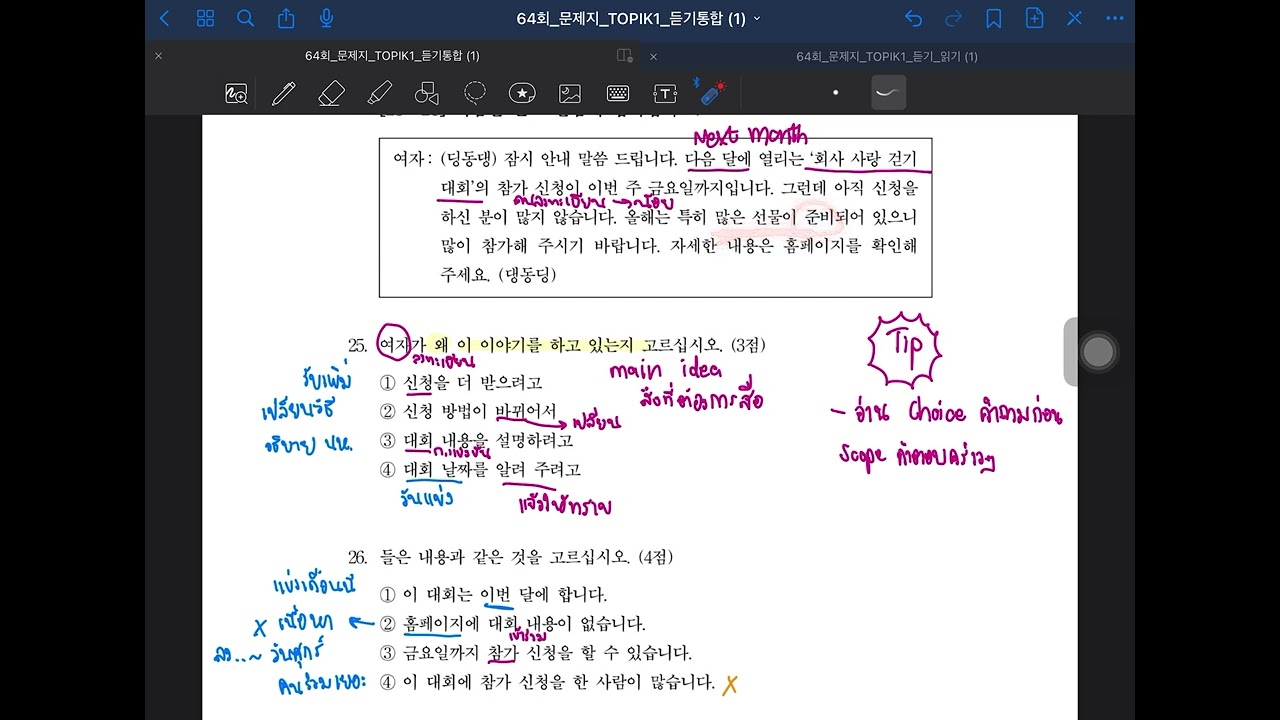 64회_문제지_TOPIK1_듣기통합 (1)
64회_문제지_TOPIK1_듣기통합 (1)
64회_문제지_TOPIK1_듣기_읽기 (1)
Next Month
여자: (딩동댕) 잠시 안내 말씀 드립니다. 다음 달에 열리는 '회사 사랑 걷기
대회'의 참가 신청이 이번 주 금요일까지입니다. 그런데 아직 신청을
คนลงทะเบียน → น้อย
하신 분이 많지 않습니다. 올해는 특히 많은 선물이 준비되어 있으니
많이 참가해 주시기 바랍니다. 자세한 내용은 홈페이지를 확인해
주세요. (댕동딩)
25. 여자가 왜 이 이야기를 하고 있는지 고르십시오. (3점)
ลงทะเบียน
รับเพิ่ม ① 신청을 더 받으려고
main idea
สิ่งที่ต้องการสื่อ
เปลี่ยนวิธี ② 신청 방법이 바뀌어서
เปลี่ยน
อธิบาย นห. ③ 대회 내용을 설명하려고
การแข่งขัน
④ 대회 날짜를 알려 주려고
วันแข่ง
แจ้งให้ทราบ
Tip
- อ่าน Choice คำถามก่อน
Scope คำตอบคร่าวๆ
26. 들은 내용과 같은 것을 고르십시오. (4점)
แข่งเดือนนี้ ① 이 대회는 이번 달에 합니다.
X เนื้อหา ← ② 홈페이지에 대회 내용이 없습니다.
เข้าร่วม
ลง..~ วันศุกร์ ③ 금요일까지 참가 신청을 할 수 있습니다.
คนร่วมเยอะ ④ 이 대회에 참가 신청을 한 사람이 많습니다. X